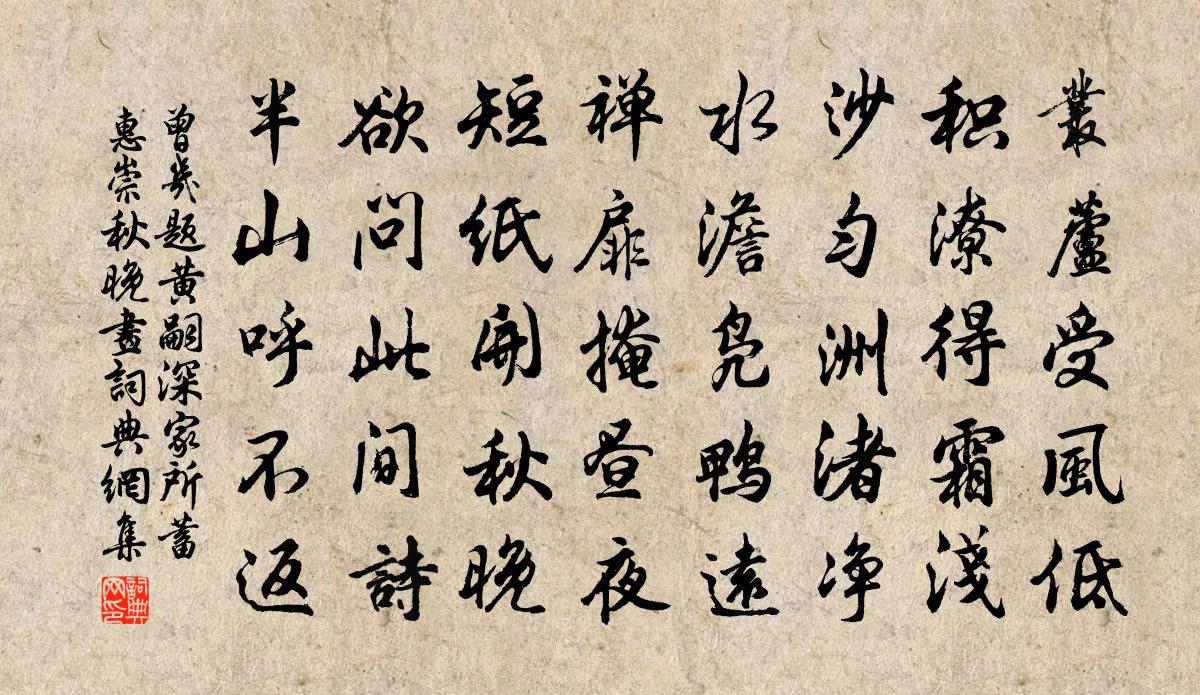 叢蘆受風低
积潦得霜淺
沙勻洲渚净
水澹凫鴨遠
禅扉掩昼夜
短紙開秋晚
欲问此间詩
半山呼不返
曾幾题黄嗣深家所蓄
惠崇秋晚畫詞典網集
詞典
网印